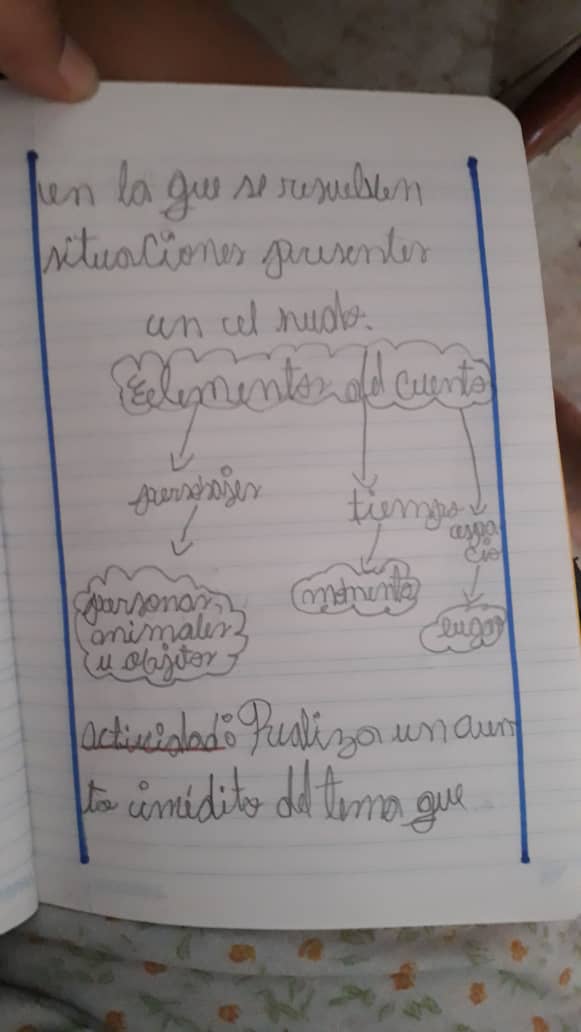 en la que se resuelven
situaciones presentes
en el nudo.
Elementos del cuento
personajes
tiempo
espa
cio
personas,
animales
u objetos
momento
lugar
actividad: Realiza un cuen
to inédito del tema que